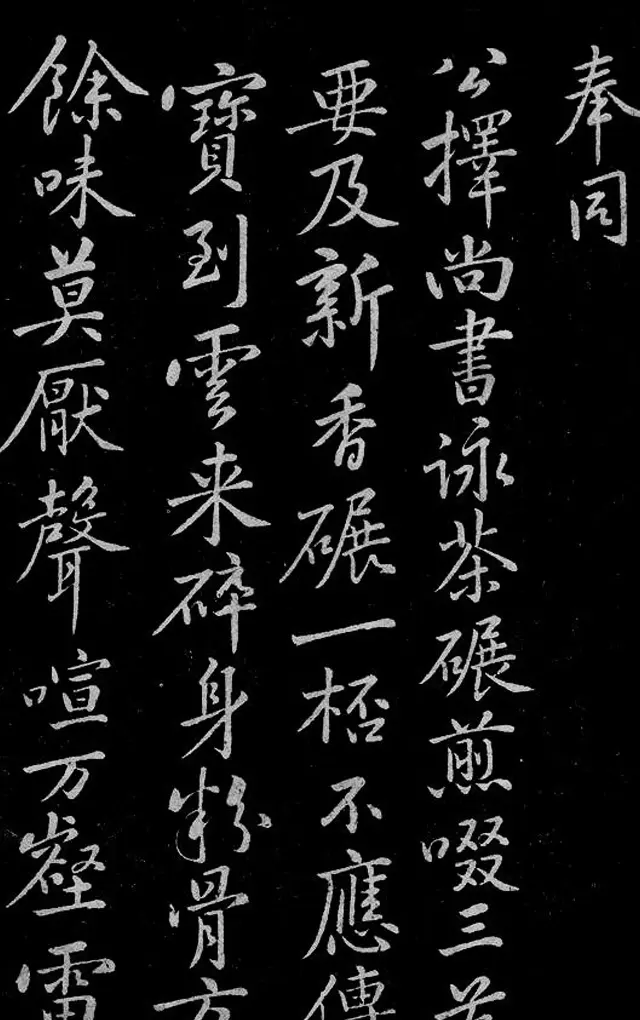 奉同
公擇尚書詠茶碾煎啜三首
要及新香碾一桮不應傳
寳到雲来碎身粉骨方
餘味莫厭聲喧万壑雷